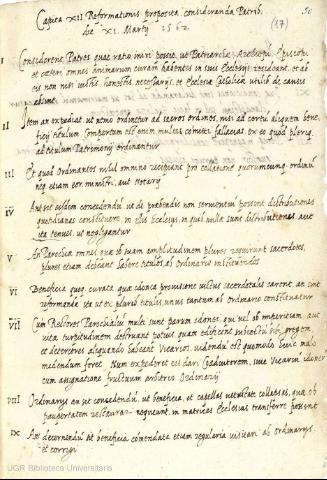 Capita XII Reformationis proposita consideranda Patrib.
die XI. Martij 1562
(17)
50
I
Considerent Patres quae ratio iniri possit, ut Patriarchae, Archiepi Episcopi
et caeteri omnes animarum curam habentes in suis Ecclesijs resideant, et ab
eis non nisi iustis honestis necessarijs, et Ecclesiae Catholicae utilib. de causis
absint.
II
Item an expediat ut nemo ordinetur ad sacros ordines, nisi ad certum aliquem bene-
ficij titulum Compertum est enim multas committi fallacias ex eo quod plerique
ad titulum Patrimonij ordinantur
III
Et quod Ordinantes nihil omnino recipiant pro collatione quorumcunque ordinum
neq. etiam eor. ministri, aut notarij
IV
An sit eisdem concedendum ut de prebendis non servientium possent distributiones
quotidianas constituere, in illis Ecclesijs, in quib. nulla sunt distributiones, aut
ita tenues, ut negligantur
V
An Parochiae omnes, quae ob suam amplitudinem plures requirunt sacerdotes,
plures etiam debeant habere titulos, ab Ordinarijs instituendos
VI
Beneficia quoq. curata, quae idonea provisione unius sacerdotalis carent, an sint
reformanda, ita ut ex pluribus titulis, unus tantum ab Ordinario constituatur
VII
Cum Rectores Parochiales multi sunt parum idonei, qui vel ob imperitiam, aut
vitae turpitudinem destruant potius, quam edificent subiectum sibi gregem,
et deteriores aliquando habeant Vicarios, videndum est quomodo huic malo
medendum foret. Num expediret eis dari Coadiutores, sive Vicarios idoneos
cum assignatione fructuum arbitrio Ordinarij
VIII
Ordinarijs an sit concedendum, ut beneficia, et capellas vetustate collapsas, quae ob
paupertatem restaurari nequeunt, in matrices Ecclesias transferre possent
IX
An decernendum ut beneficia commendata etiam regularia visitari ab Ordinarijs,
et corrigi
UGR Biblioteca Universitaria